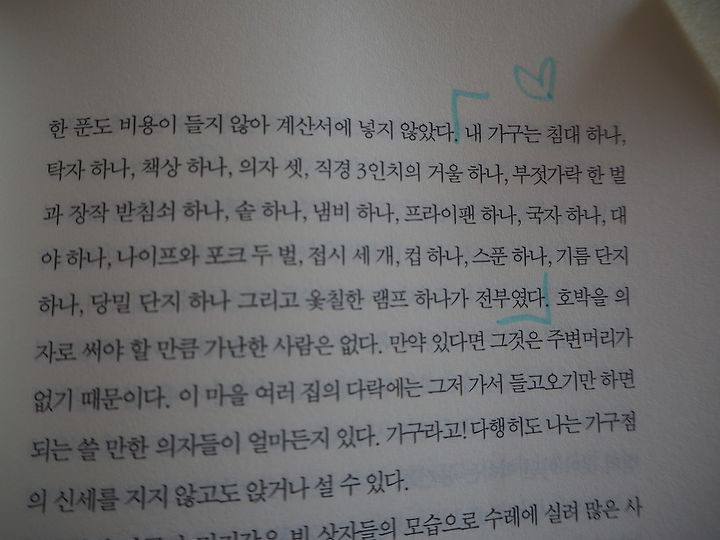 한 푼도 비용이 들지 않아 계산서에 넣지 않았다. 내 가구는 침대 하나,
탁자 하나, 책상 하나, 의자 셋, 직경 3인치의 거울 하나, 부젓가락 한 벌
과 장작 받침쇠 하나, 솥 하나, 냄비 하나, 프라이팬 하나, 국자 하나, 대
야 하나, 나이프와 포크 두 벌, 접시 세 개, 컵 하나, 스푼 하나, 기름 단지
하나, 당밀 단지 하나 그리고 옻칠한 램프 하나가 전부였다. 호박을 의
자로 써야 할 만큼 가난한 사람은 없다. 만약 있다면 그것은 주변머리가
없기 때문이다. 이 마을 여러 집의 다락에는 그저 가서 들고오기만 하면
되는 쓸 만한 의자들이 얼마든지 있다. 가구라고! 다행히도 나는 가구점
의 신세를 지지 않고도 앉거나 설 수 있다.
빈 상자들의 모습으로 수레에 실려 많은 사